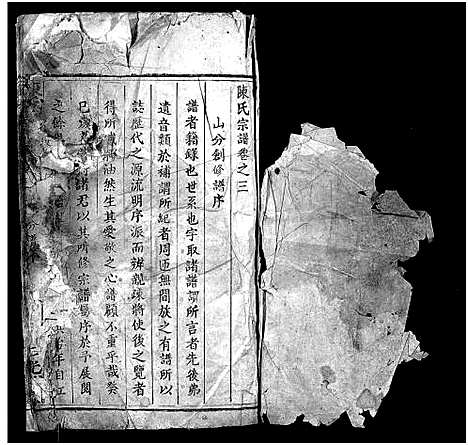 陳氏宗譜卷之三
山分創修譜序
譜者籍錄也世系也字取諸譜謂所言者先後弗
遺音類於補謂所紀者周匝無間放之有譜所以
誌歷代之源流明序派而辨親疎將使後之覽者
得所溯油然生其愛敬之心譜顧不重乎哉癸
巳諸君以其所修宗譜屬序於予展閱
之餘